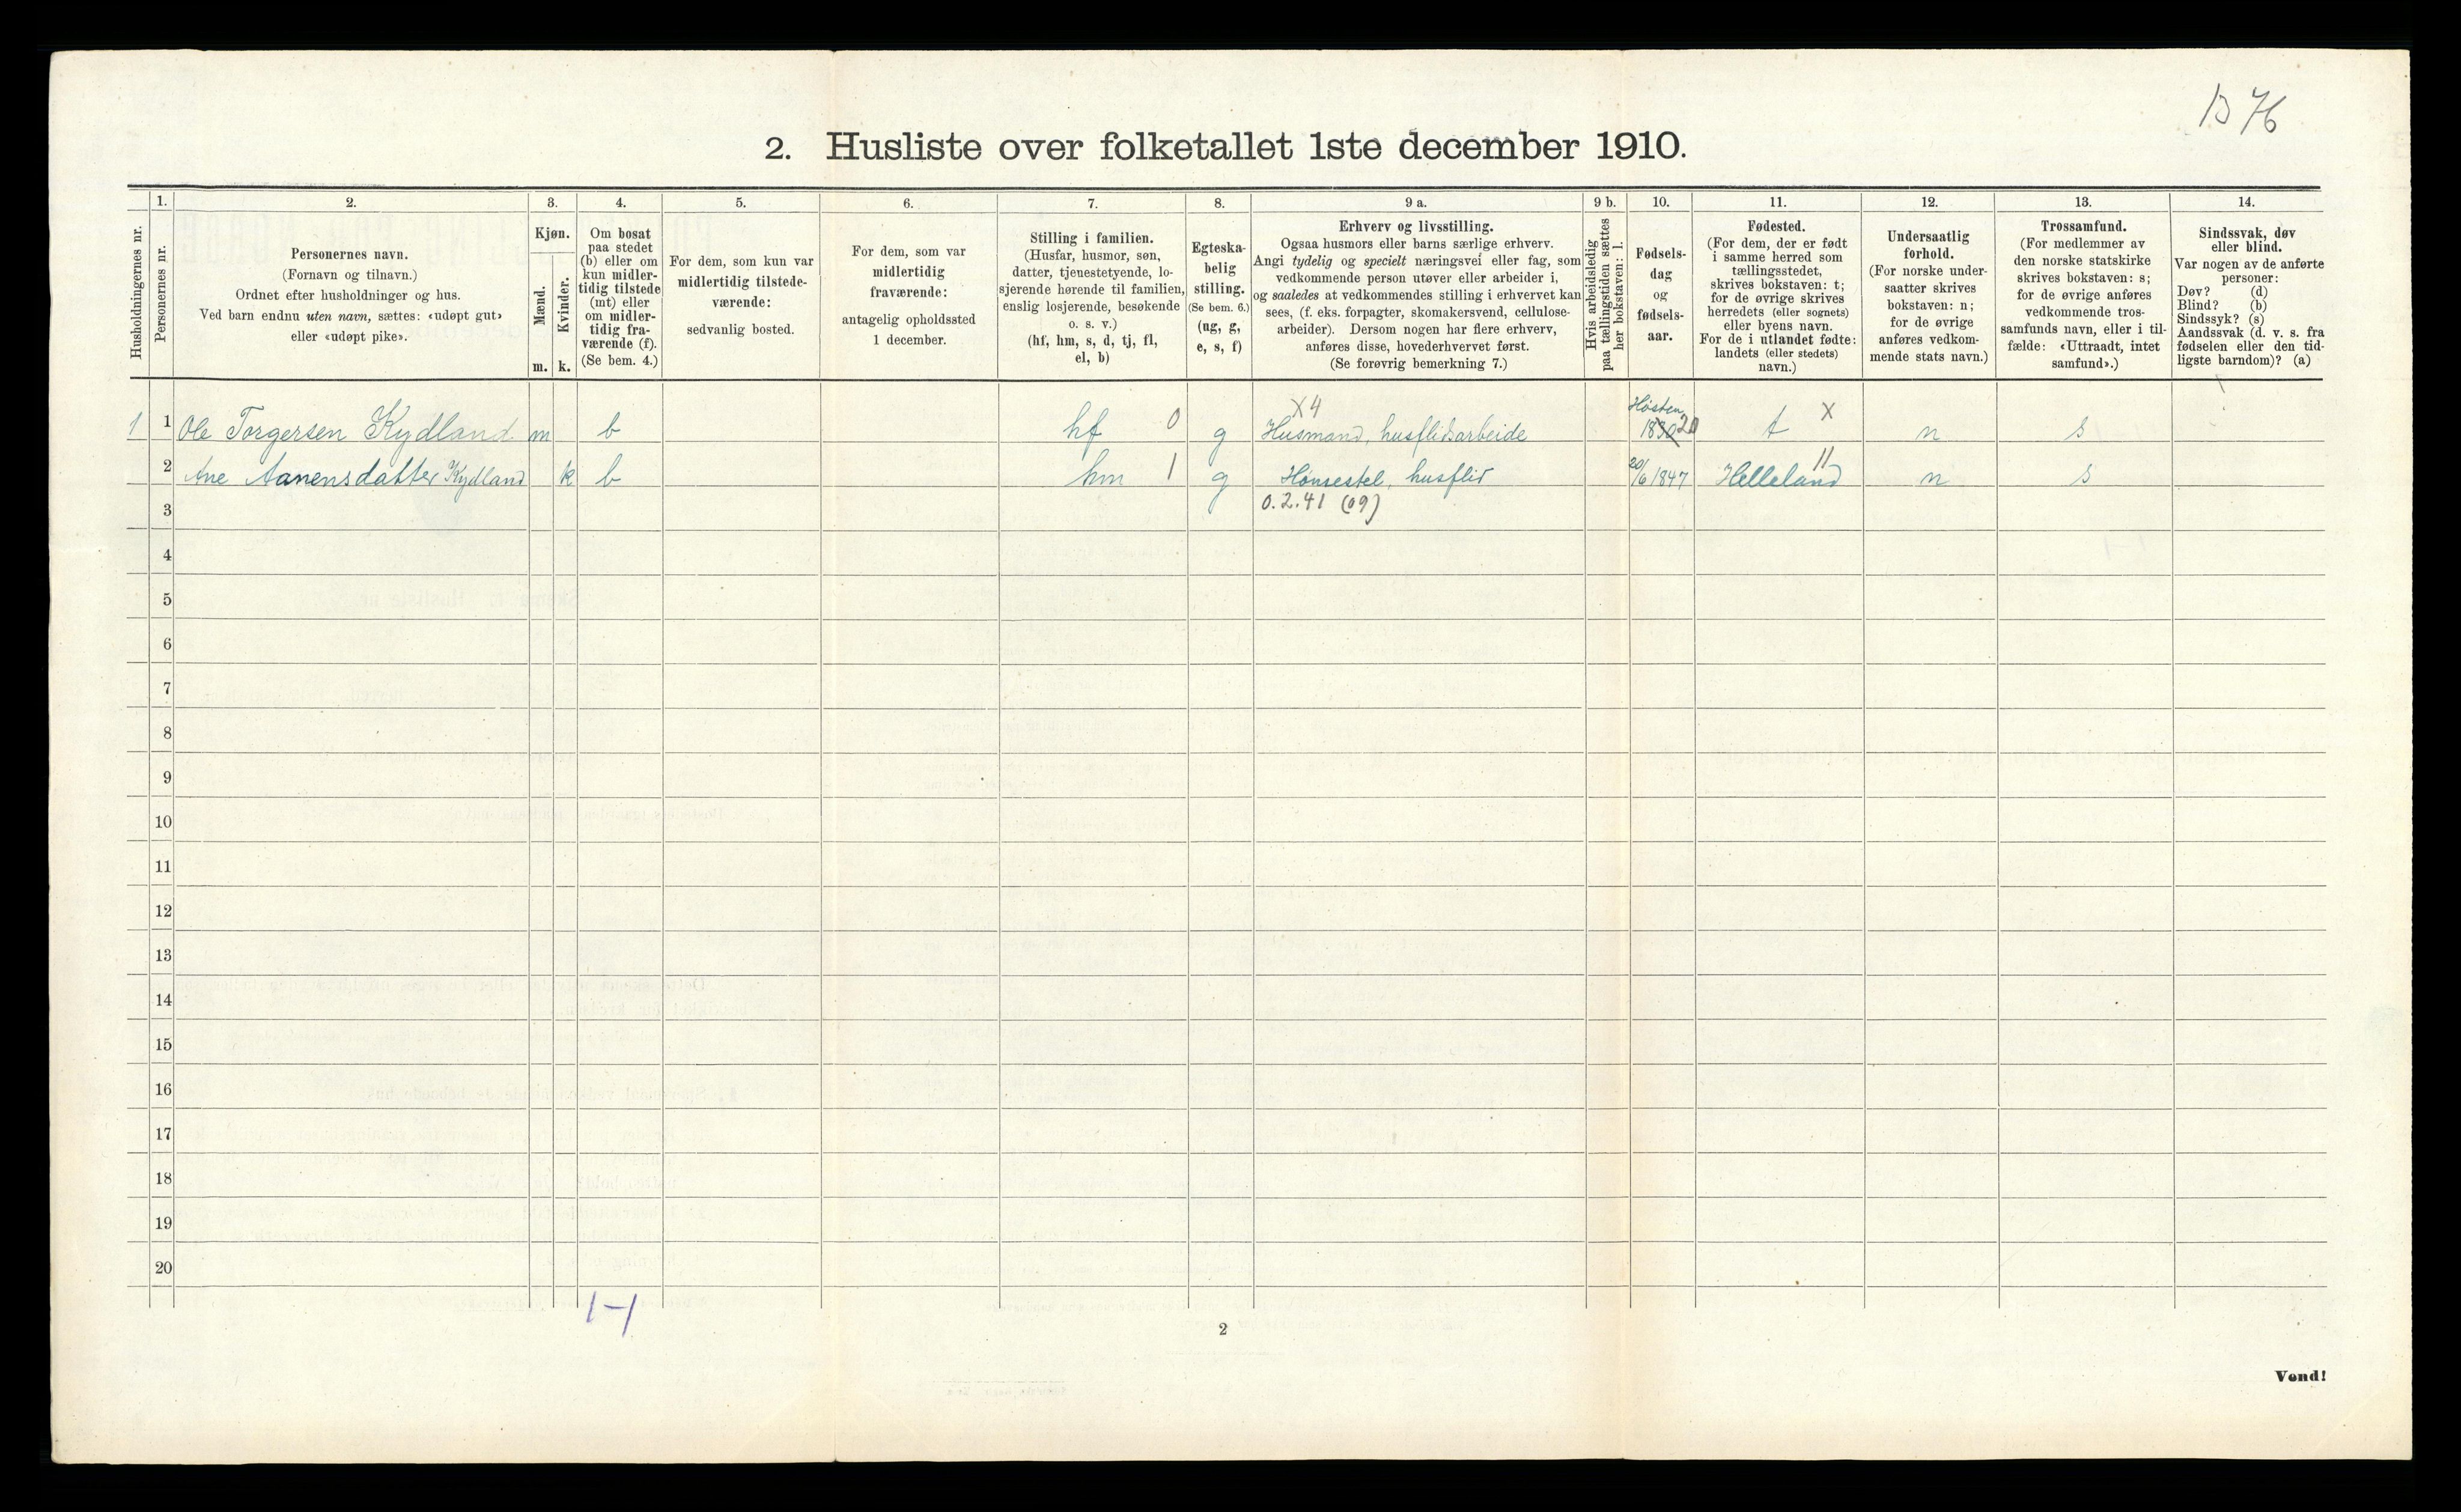 B 76
2. Husliste over folketallet 1ste december 1910.
Husholdningernes nr.
1.
Personernes nr.
2.
Personernes navn.
(Fornavn og tilnavn.)
Ordnet efter husholdninger og hus.
Ved barn endnu uten navn, sættes: «udøpt gut»
eller «udøpt pike».
3.
Kjøn.
Mænd.
m.
Kvinder.
k.
4.
Om bosat
paa stedet
(b) eller om
kun midler-
tidig tilstede
(mt) eller
om midler-
tidig fra-
værende (f).
(Se bem. 4.)
5.
For dem, som kun var
midlertidig tilstede-
værende:
sedvanlig bosted.
6.
For dem, som var
midlertidig
fraværende:
antagelig opholdssted
1 december.
7.
Stilling i familien.
(Husfar, husmor, søn,
datter, tjenestetyende, lo-
sjerende hørende til familien,
enslig losjerende, besøkende
o. s. v.)
(hf, hm, s, d, tj, fl,
el, b)
8.
Egteska-
belig
stilling.
(Se bem. 6.)
(ug, g,
e, s, f)
9 a.
Erhverv og livsstilling.
Ogsaa husmors eller barns særlige erhverv.
Angi tydelig og specielt næringsvei eller fag, som
vedkommende person utøver eller arbeider i,
og saaledes at vedkommendes stilling i erhvervet kan
sees, (f. eks. forpagter, skomakersvend, cellulose-
arbeider). Dersom nogen har flere erhverv,
anføres disse, hovederhvervet først.
(Se forøvrig bemerkning 7.)
9 b.
Hvis arbeidsledig
paa tællingstiden sættes
her bokstaven: l.
10.
Fødsels-
dag
og
fødsels-
aar.
11.
Fødested.
(For dem, der er født
i samme herred som
tællingsstedet,
skrives bokstaven: t;
for de øvrige skrives
herredets (eller sognets)
eller byens navn.
For de i utlandet fødte:
landets (eller stedets)
navn.)
12.
Undersaatlig
forhold.
(For norske under-
saatter skrives
bokstaven: n;
for de øvrige
anføres vedkom-
mende stats navn.)
13.
Trossamfund.
(For medlemmer av
den norske statskirke
skrives bokstaven: s;
for de øvrige anføres
vedkommende tros-
samfunds navn, eller i til-
fælde: «Uttraadt, intet
samfund».)
14.
Sindssvak, døv
eller blind.
Var nogen av de anførte
personer:
Døv? (d)
Blind? (b)
Sindssyk? (s)
Aandssvak (d. v. s. fra
fødselen eller den tid-
ligste barndom)? (a)
X4
Høsten
1 1 Ole Torgersen Kydland m b hf 0 g Husmand, husflidsarbeide 1830 20 t X n s
2 Ane Aanensdatter Kydland k b hm 1 g Hønsestel, husflid 20/6 1847 Helleland 11 n s
3 0.2.41 (09)
4
5
6
7
8
9
10
11
12
13
14
15
16
17
18
19
20
1-1
2
Vend!